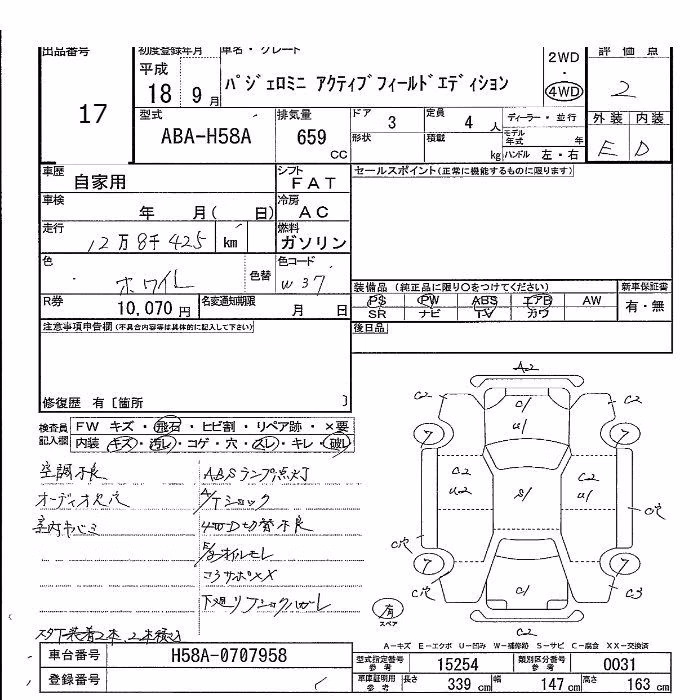 出品番号 初度登録年月 車名・グレード 評価点
17 平成 18 9月 パジェロミニ アクティブフィールドエディション 2WD・4WD 2
型式 ABA-H58A 排気量 659 cc ドア 3 定員 4 人 ディーラー・並行 外装 内装
形状 積載 kg モデル年式 年 ハンドル 左・右 E D
車歴 自家用 シフト FAT セールスポイント(正常に機能するものに限ります)
車検 年 月( 日) 冷房 AC
走行 12万8千425 km 燃料 ガソリン
色 ホワイト 色替 色コード W37
装備品 (純正品に限り〇をつけてください) 新車保証書
R券 10,070円 名変通知期限 月 日 PS PW ABS エアB AW 有・無
SR ナビ TV カワ
注意事項申告欄(不具合内容等は具体的に記入して下さい) 後日品
修復歴 有〔箇所 〕
検査員記入欄 FW キズ・飛石・ヒビ割・リペア跡・×要
内装 キズ・汚レ・コゲ・穴・スレ・キレ・破レ
空調不良 ABSランプ点灯
オーディオ欠穴 A/Tショック
室内キバミ 4WD切替不良
オイルモレ
コアサポXX
下廻リフレ
A2
C2 C/ U/ C2
7 7
C2 U2 S/ C2 U/
C穴 C穴
7 7
C穴 C/ C3
C2
有 スペア
A-キズ E-エクボ U-凹み W-補修跡 S-サビ C-腐食 XX-交換済
車台番号 H58A-0707958 型式指定番号 参考 15254 類別区分番号 参考 0031
登録番号 車庫証明用 参考 長さ 339 cm 幅 147 cm 高さ 163 cm